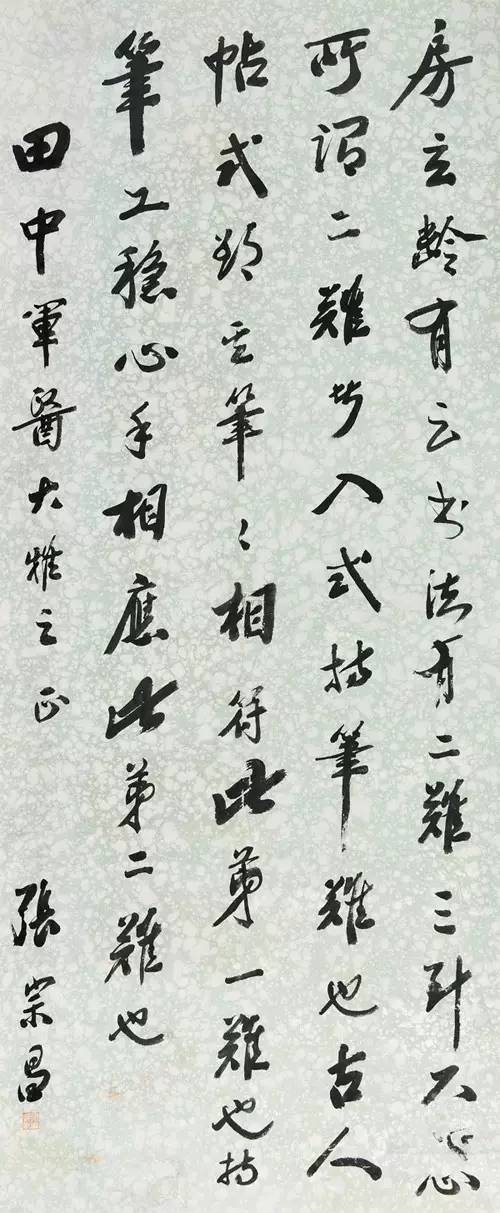 房玄齡有云书法有二難三
所謂二難入式持筆難也古人
帖式筆〻相符此第一難也持
筆工穩心手相應此第二難也
田中軍醫大雅之正 張宗昌